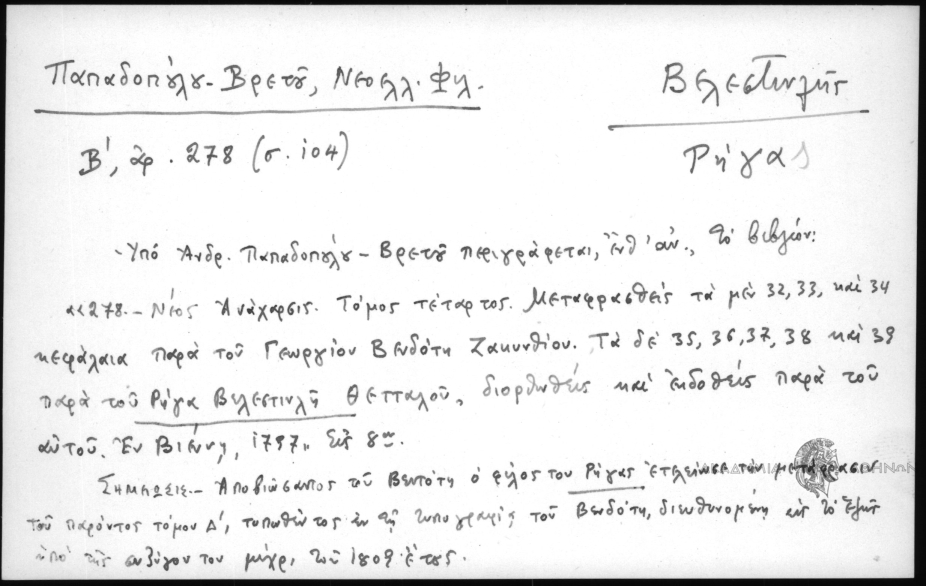 Παπαδοπούλου-Βρετοῦ, Νεοελλ. Φιλ.
Βελεστινλῆς
Β΄, ἀρ. 278 (σ. 104)
Ρήγας
Ὑπό Ἀνδρ. Παπαδοπούλου-Βρετοῦ περιγράφεται, ἔνθ' ἀν., τό βιβλίον:
«278.- Νέος Ἀνάχαρσις. Τόμος τέταρτος. Μεταφρασθείς τά μέν 32, 33, καί 34
κεφάλαια παρά τοῦ Γεωργίου Βενδότη Ζακυνθίου. Τά δέ 35, 36, 37, 38 καί 39
παρά τοῦ Ρήγα Βελεστινλῆ Θετταλοῦ, διορθωθείς καί ἐκδοθείς παρά τοῦ
αὐτοῦ. Ἐν Βιέννῃ, 1797, Εἰς 8ον.
Σημείωσις.- Ἀποβιώσαντος τοῦ Βεντότη ὁ φίλος του Ρήγας ἐτελείωσε τήν μετάφρασιν
τοῦ παρόντος τόμου Δ΄, τυπωθέντος ἐν τῇ τυπογραφίᾳ τοῦ Βενδότη, διευθυνομένῃ εἰς τό ἑξῆς
ὑπό τῆς συζύγου του μέχρι τοῦ 1809 ἔτους.